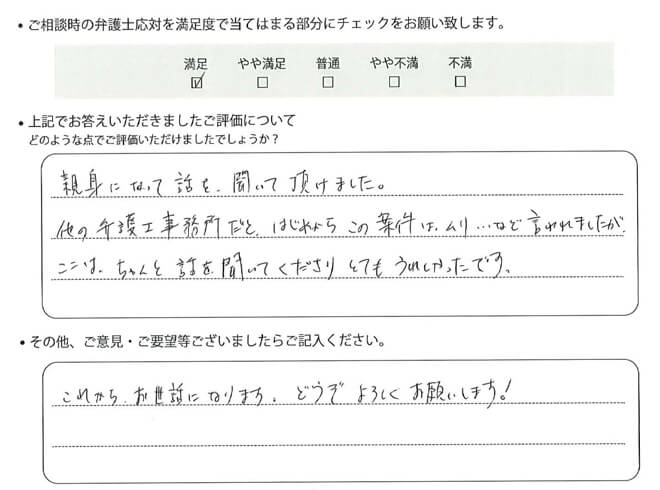 • ご相談時の弁護士応対を満足度で当てはまる部分にチェックをお願い致します。
満足 やや満足 普通 やや不満 不満
☑ ☐ ☐ ☐ ☐
• 上記でお答えいただきましたご評価について
どのような点でご評価いただけましたでしょうか？
親身になって話を、聞いて頂けました。
他の弁護士事務所だと、はじめから この案件は、ムリ…など言われましたが
ここは、ちゃんと話を聞いてくださり とても うれしかったです。
• その他、ご意見・ご要望等ございましたらご記入ください。
これから、お世話になります。どうぞ よろしく お願いします！